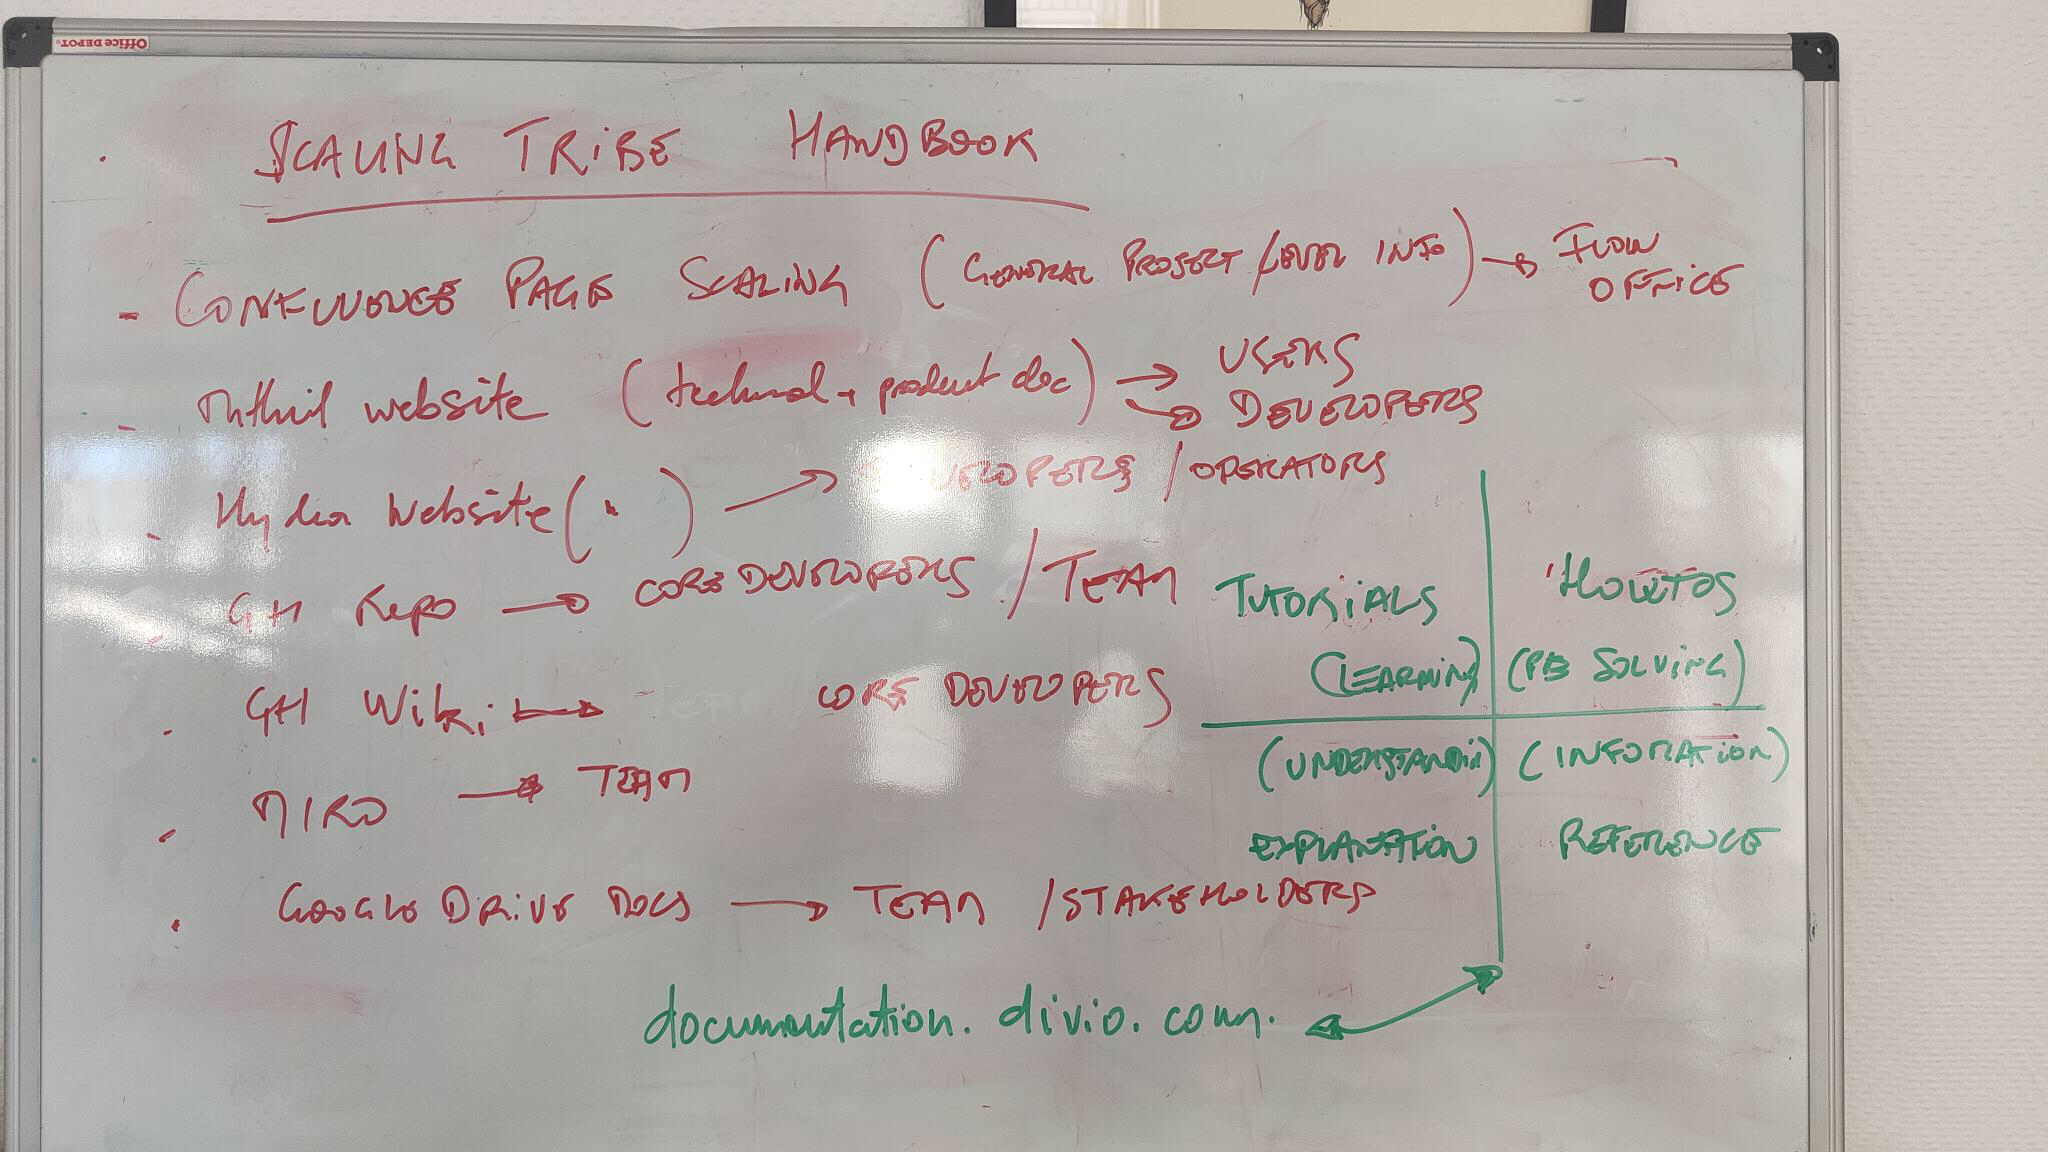 Office DEPOT
SCALING TRIBE HANDBOOK
- CONFLUENCE PAGE SCALING (GENERAL PROJECT/LEVEL INFO) → FLOW OFFICE
- Mithril website (technical + product doc) → USERS
→ DEVELOPERS
- Hydra Website (") → DEVELOPERS / OPERATORS
- GH Repo → CORE DEVELOPERS / TEAM
- GH Wiki → CORE DEVELOPERS
- MIRO → TEAM
- GOOGLE DRIVE DOCS → TEAM / STAKEHOLDERS
TUTORIALS HOWTOS
(LEARNING) (PB SOLVING)
(UNDERSTANDIN) (INFORMATION)
EXPLANATION REFERENCE
documentation.divio.com.